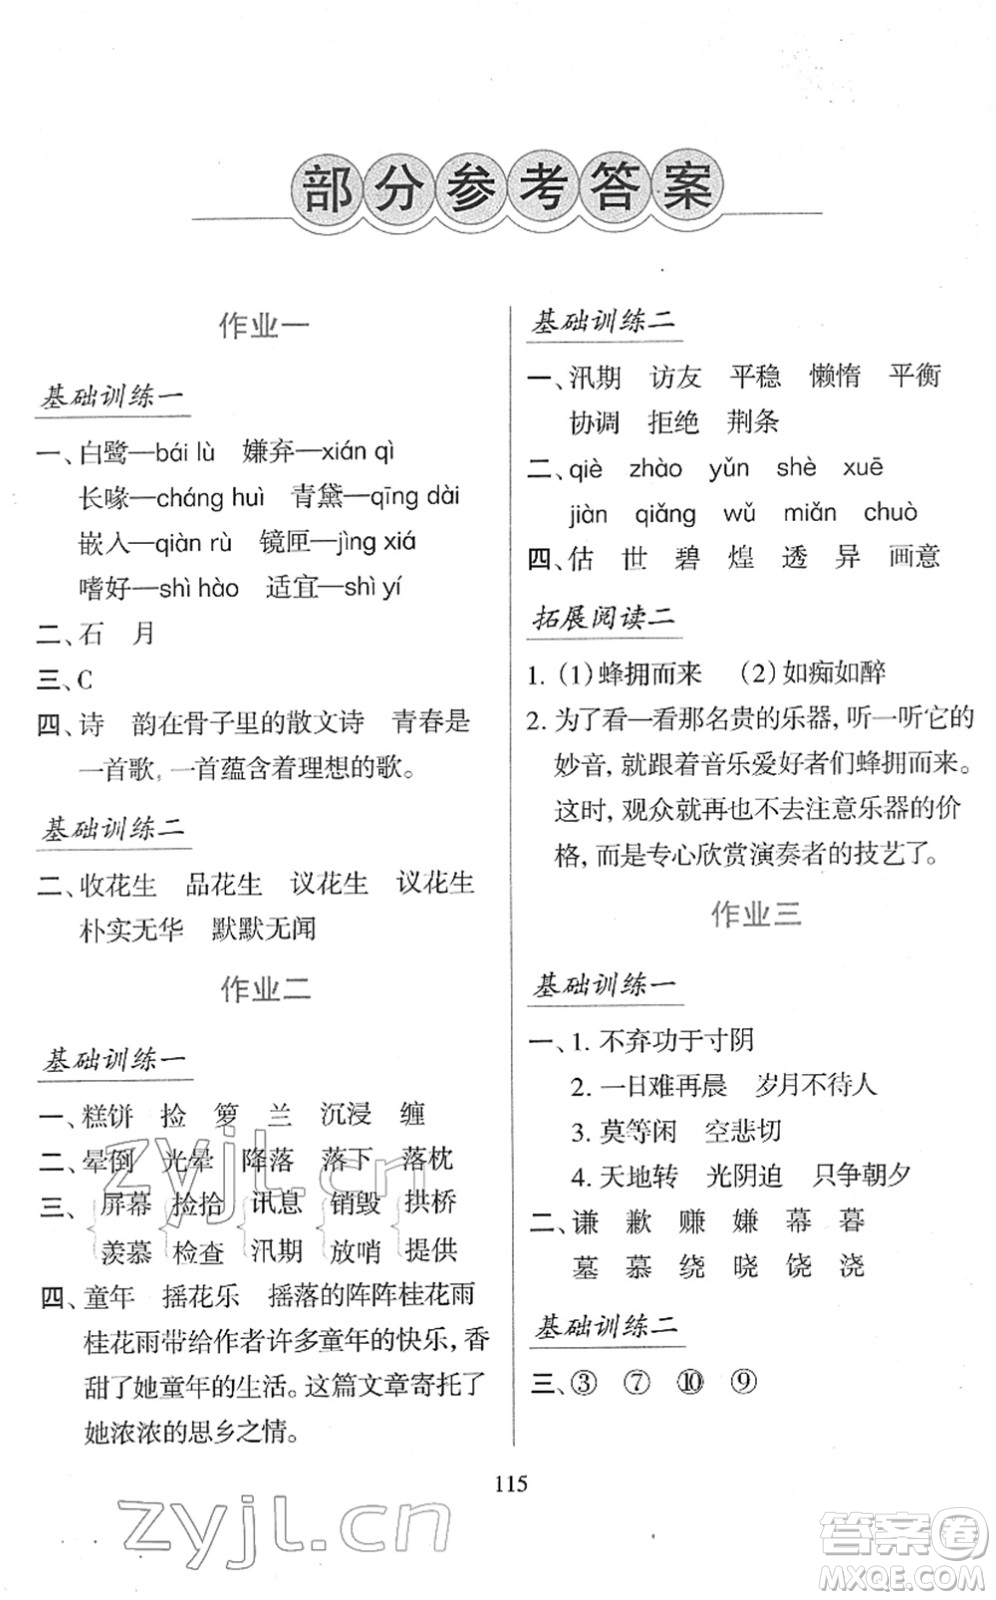 部分参考答案
作业一
基础训练一
一、白鹭—bái lù 嫌弃—xián qì
长喙—cháng huì 青黛—qīng dài
嵌入—qiàn rù 镜匣—jìng xiá
嗜好—shì hào 适宜—shì yí
二、石 月
三、C
四、诗 韵在骨子里的散文诗 青春是
一首歌，一首蕴含着理想的歌。
基础训练二
二、收花生 品花生 议花生 议花生
朴实无华 默默无闻
作业二
基础训练一
一、糕饼 捡 箩 兰 沉浸 缠
二、晕倒 光晕 降落 落下 落枕
三、屏幕 捡拾 讯息 销毁 拱桥
羡慕 检查 汛期 放哨 提供
四、童年 摇花乐 摇落的阵阵桂花雨
桂花雨带给作者许多童年的快乐，香
甜了她童年的生活。这篇文章寄托了
她浓浓的思乡之情。
基础训练二
一、汛期 访友 平稳 懒惰 平衡
协调 拒绝 荆条
二、qiè zhào yǔn shè xuē
jiàn qiǎng wǔ miǎn chuò
四、估 世 碧 煌 透 异 画意
拓展阅读二
1. (1) 蜂拥而来 (2) 如痴如醉
2. 为了看一看那名贵的乐器，听一听它的
妙音，就跟着音乐爱好者们蜂拥而来。
这时，观众就再也不去注意乐器的价
格，而是专心欣赏演奏者的技艺了。
作业三
基础训练一
一、1. 不弃功于寸阴
2. 一日难再晨 岁月不待人
3. 莫等闲 空悲切
4. 天地转 光阴迫 只争朝夕
二、谦 歉 赚 嫌 幕 暮
墓 慕 绕 晓 饶 浇
基础训练二
三、③ ⑦ ⑩ ⑨
115
zyjl.cn
zyjl.cn
答案圈
MXQE.COM